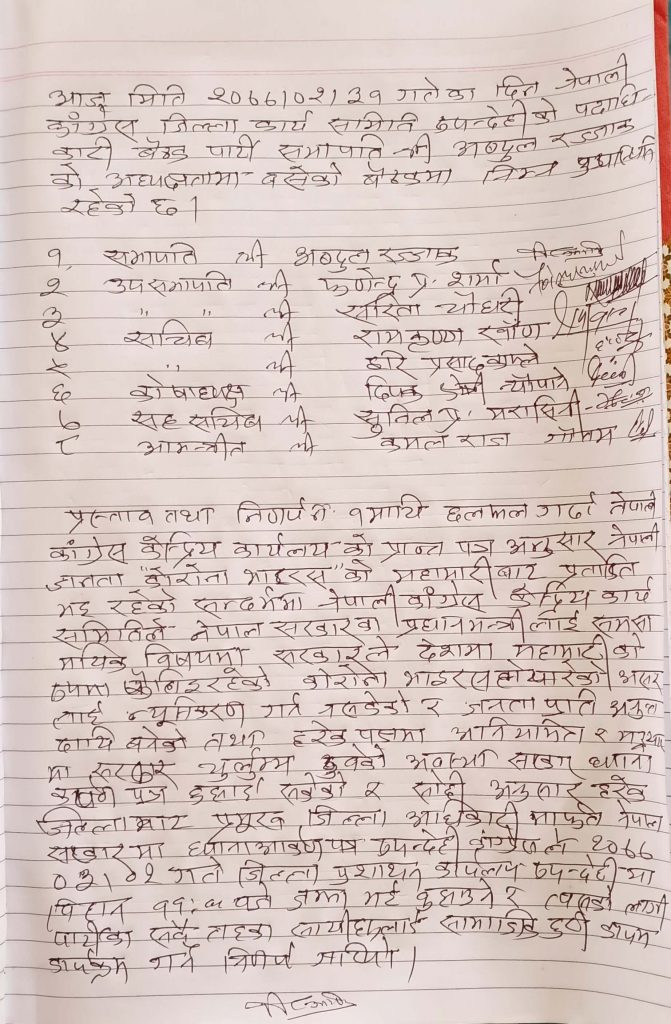 आज मिति २०७७।०२।३१ गतेका दिन नेपाली
कांग्रेस जिल्ला कार्य समिति रुपन्देहीको पदाधि
कारी बैठक पार्टी सभापति श्री अब्दुल रज्जाक
को अध्यक्षतामा बसेको बैठकमा निम्न उपस्थिति
रहेको छ।
१. सभापति श्री अब्दुल रज्जाक
२ उपसभापति श्री फणेन्द्र प्र. शर्मा
३ " " श्री सरिता चौधरी
४ सचिव श्री रामकृष्ण खाँण
५ " श्री हरि प्रसाद काफ्ले
६ कोषाध्यक्ष श्री दिपक न्यौपाने
७ सह सचिव श्री सुनिल प्र. मरासिनी
८ आमन्त्रीत श्री कमल राज गौतम
प्रस्ताव तथा निर्णय नं. १ माथि छलफल गर्दा नेपाली
कांग्रेस केन्द्रिय कार्यलय को प्राप्त पत्र अनुसार नेपाली
जनता "कोरोना भाइरस" को महामारीबाट प्रताडित
भइ रहेको सन्दर्भमा नेपाली कांग्रेस केन्द्रिय कार्य
समितिले नेपाल सरकारका प्रधानमन्त्रीलाई समसा
मयिक विषयमा सरकारले देशमा महामारीको
रुपमा फैलिइरहेको कोरोना भाइरस
लाई न्यूनिकरण गर्न नसकेको र जनता प्रति
बनेको तथा हरेक पक्षमा अनियमित र
मा सरकार चुर्लुम्म डुबेको अवस्था
पत्र बुझाई सकेको र सोही अनुसार हरेक
जिल्लाबाट प्रमुख जिल्ला अधिकारी मार्फत नेपाल
सरकारमा ध्यानाकर्षण पत्र रुपन्देही कांग्रेसले २०७७
०३।०१ गते जिल्ला प्रशासन कार्यालय रुपन्देही मा
विहान ११: बजे जम्मा भई बुझाउने र त्यसको लागी
पार्टीका सबै तहका साथीहरूलाई सामाजिक दुरी कायम
गर्ने निर्णय गरियो।